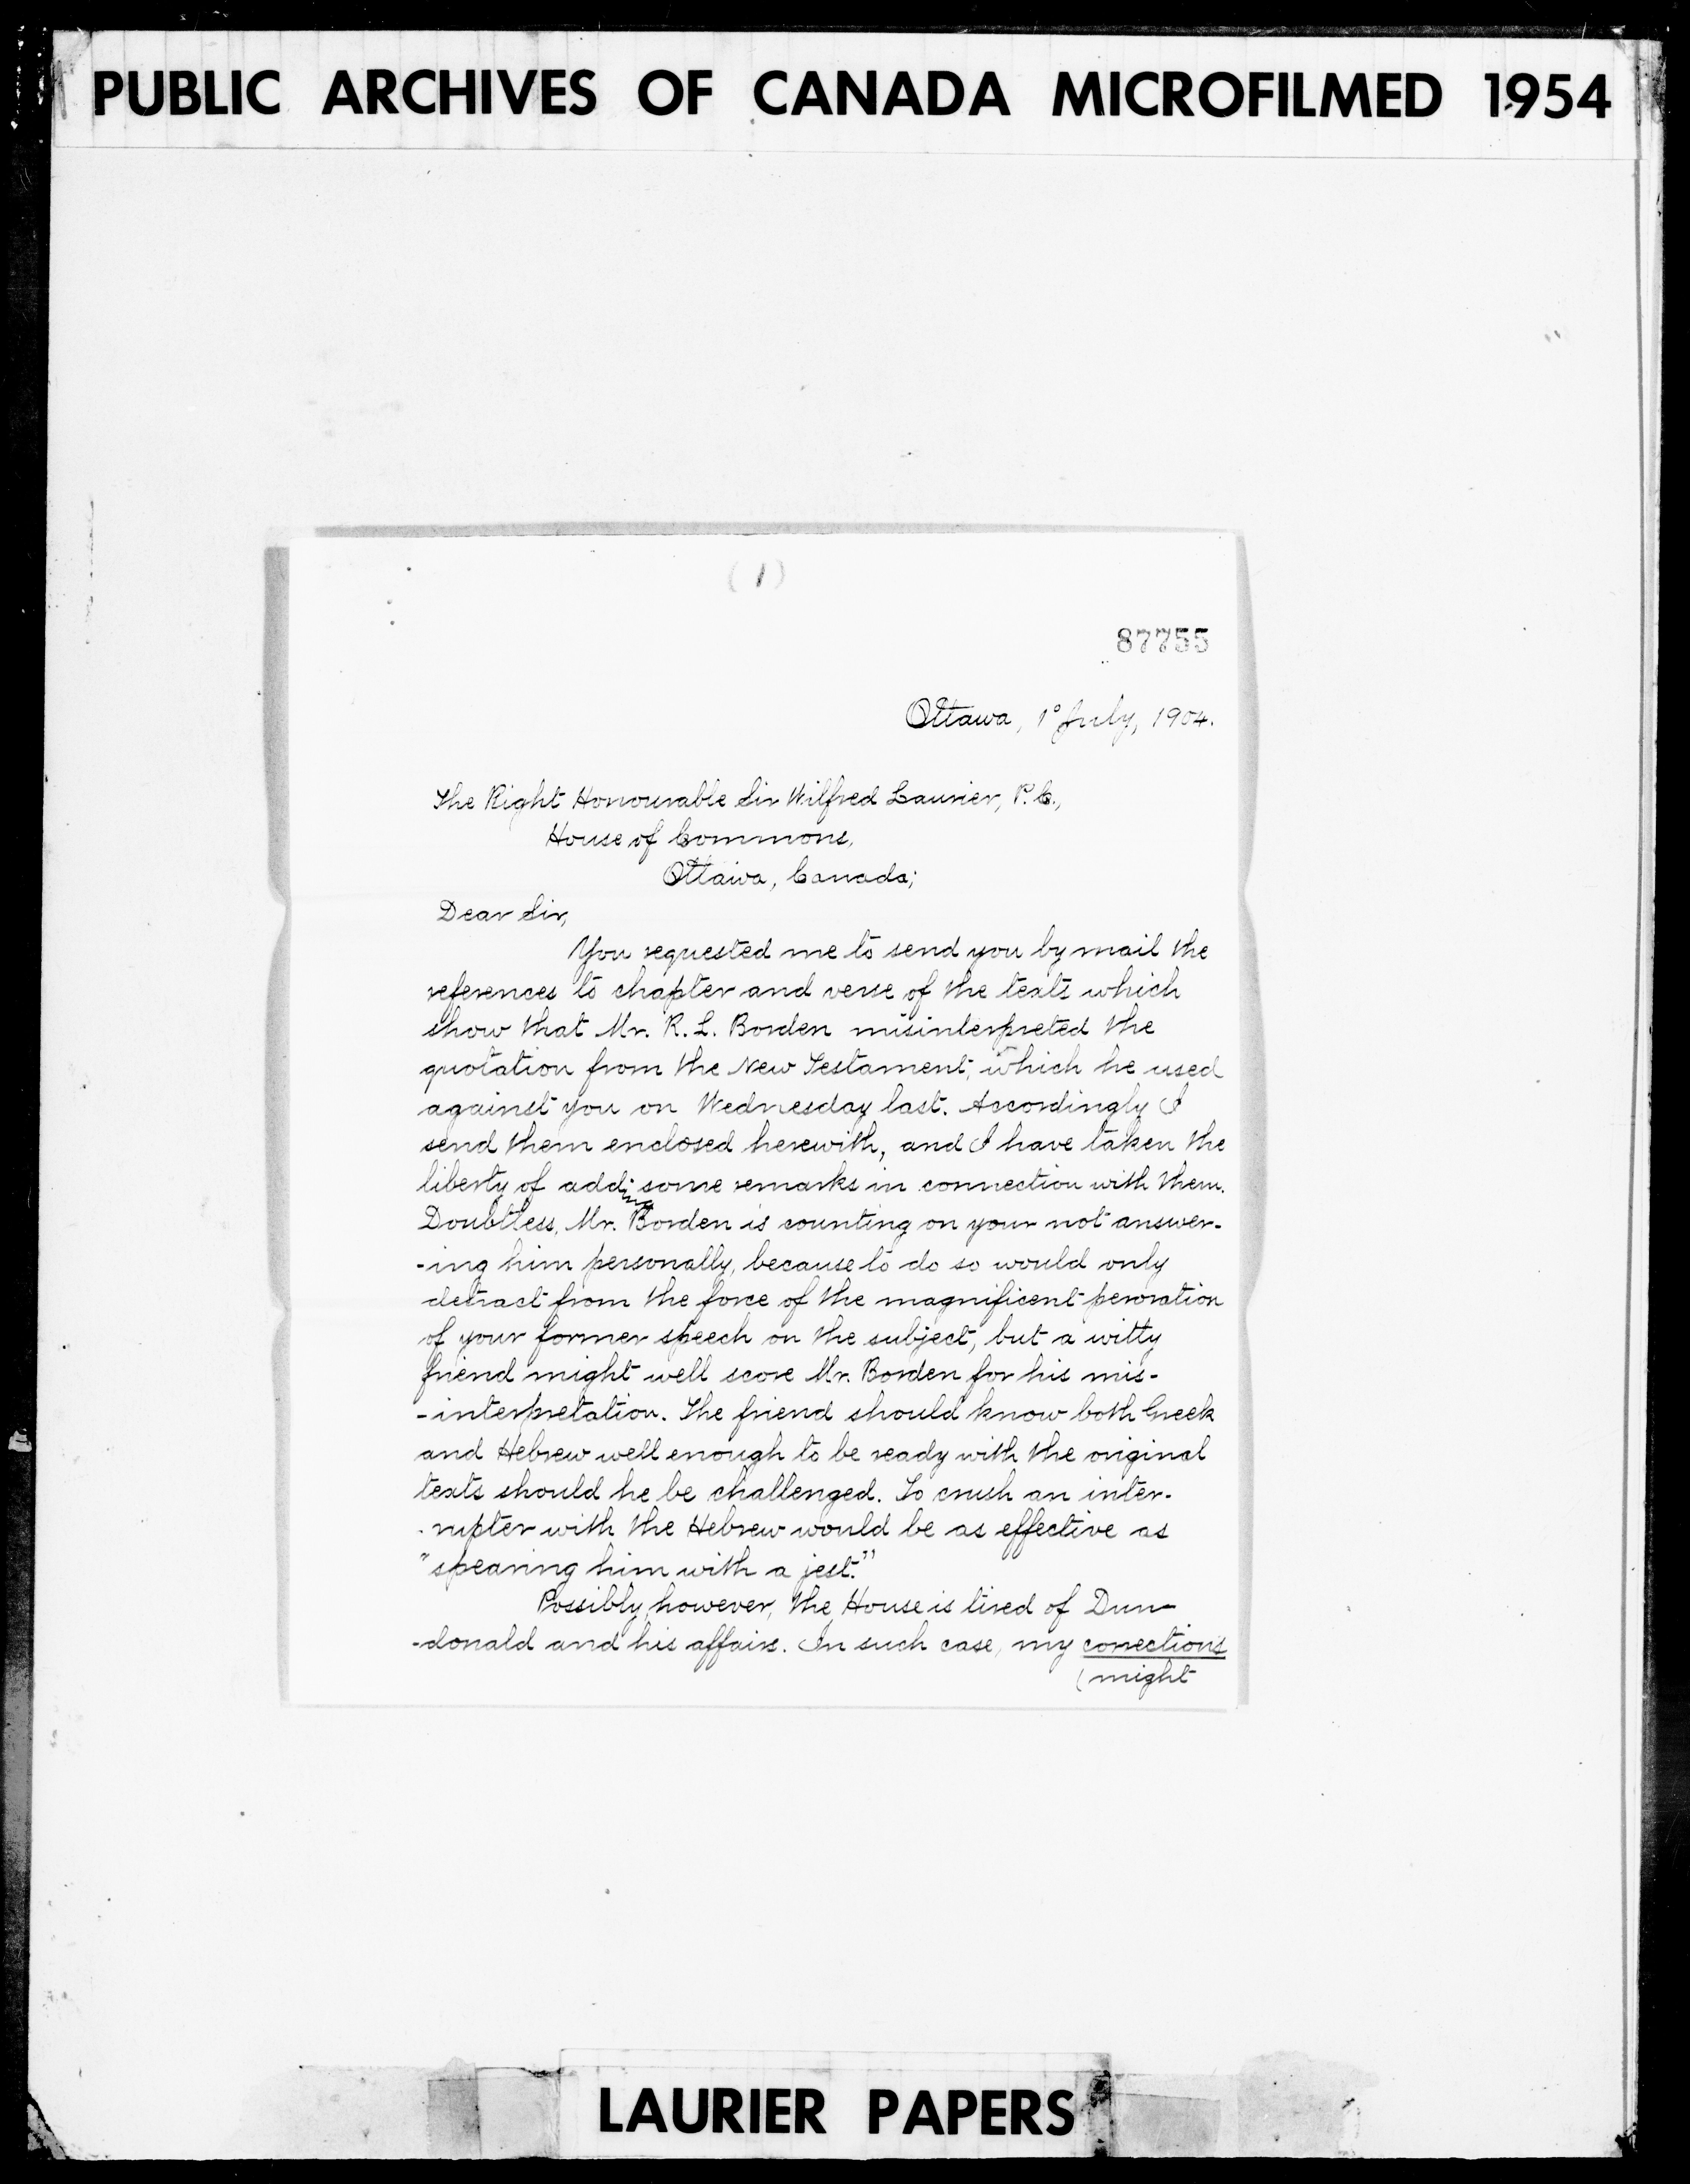 PUBLIC ARCHIVES OF CANADA MICROFILMED 1954
(1)
87755
Ottawa, 1º July, 1904.
The Right Honourable Sir Wilfred Laurier, P.C.,
House of Commons,
Ottawa, Canada;
Dear Sir,
You requested me to send you by mail the
references to chapter and verse of the texts which
show that Mr. R. L. Borden misinterpreted the
quotation from the New Testament, which he used
against you on Wednesday last. Accordingly I
send them enclosed herewith, and I have taken the
liberty of adding some remarks in connection with them.
Doubtless, Mr. Borden is counting on your not answer-
-ing him personally, because to do so would only
detract from the force of the magnificent peroration
of your former speech on the subject, but a witty
friend might well score Mr. Borden for his mis-
-interpretation. The friend should know both Greek
and Hebrew well enough to be ready with the original
texts should he be challenged. To crush an inter-
-rupter with the Hebrew would be as effective as
"spearing him with a jest."
Possibly, however, the House is tired of Dun-
-donald and his affairs. In such case, my corrections
(might
LAURIER PAPERS